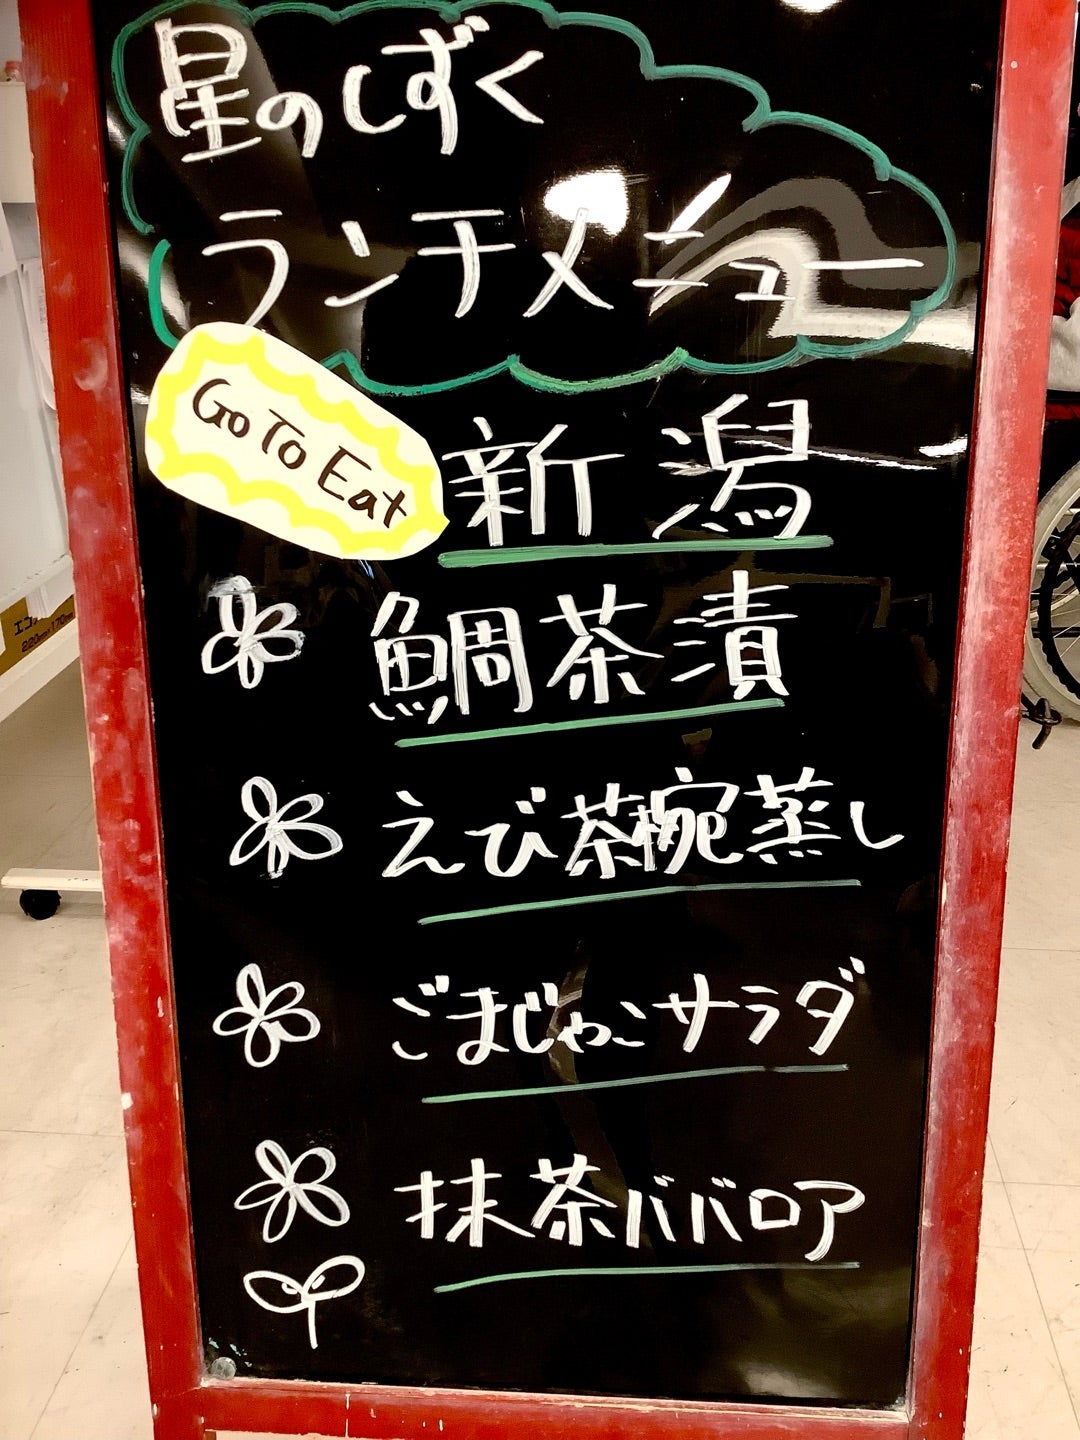 星のしずく
ランチメニュー
Go To Eat
新潟
鯛茶漬
えび茶碗蒸し
ごまじゃこサラダ
抹茶ババロア